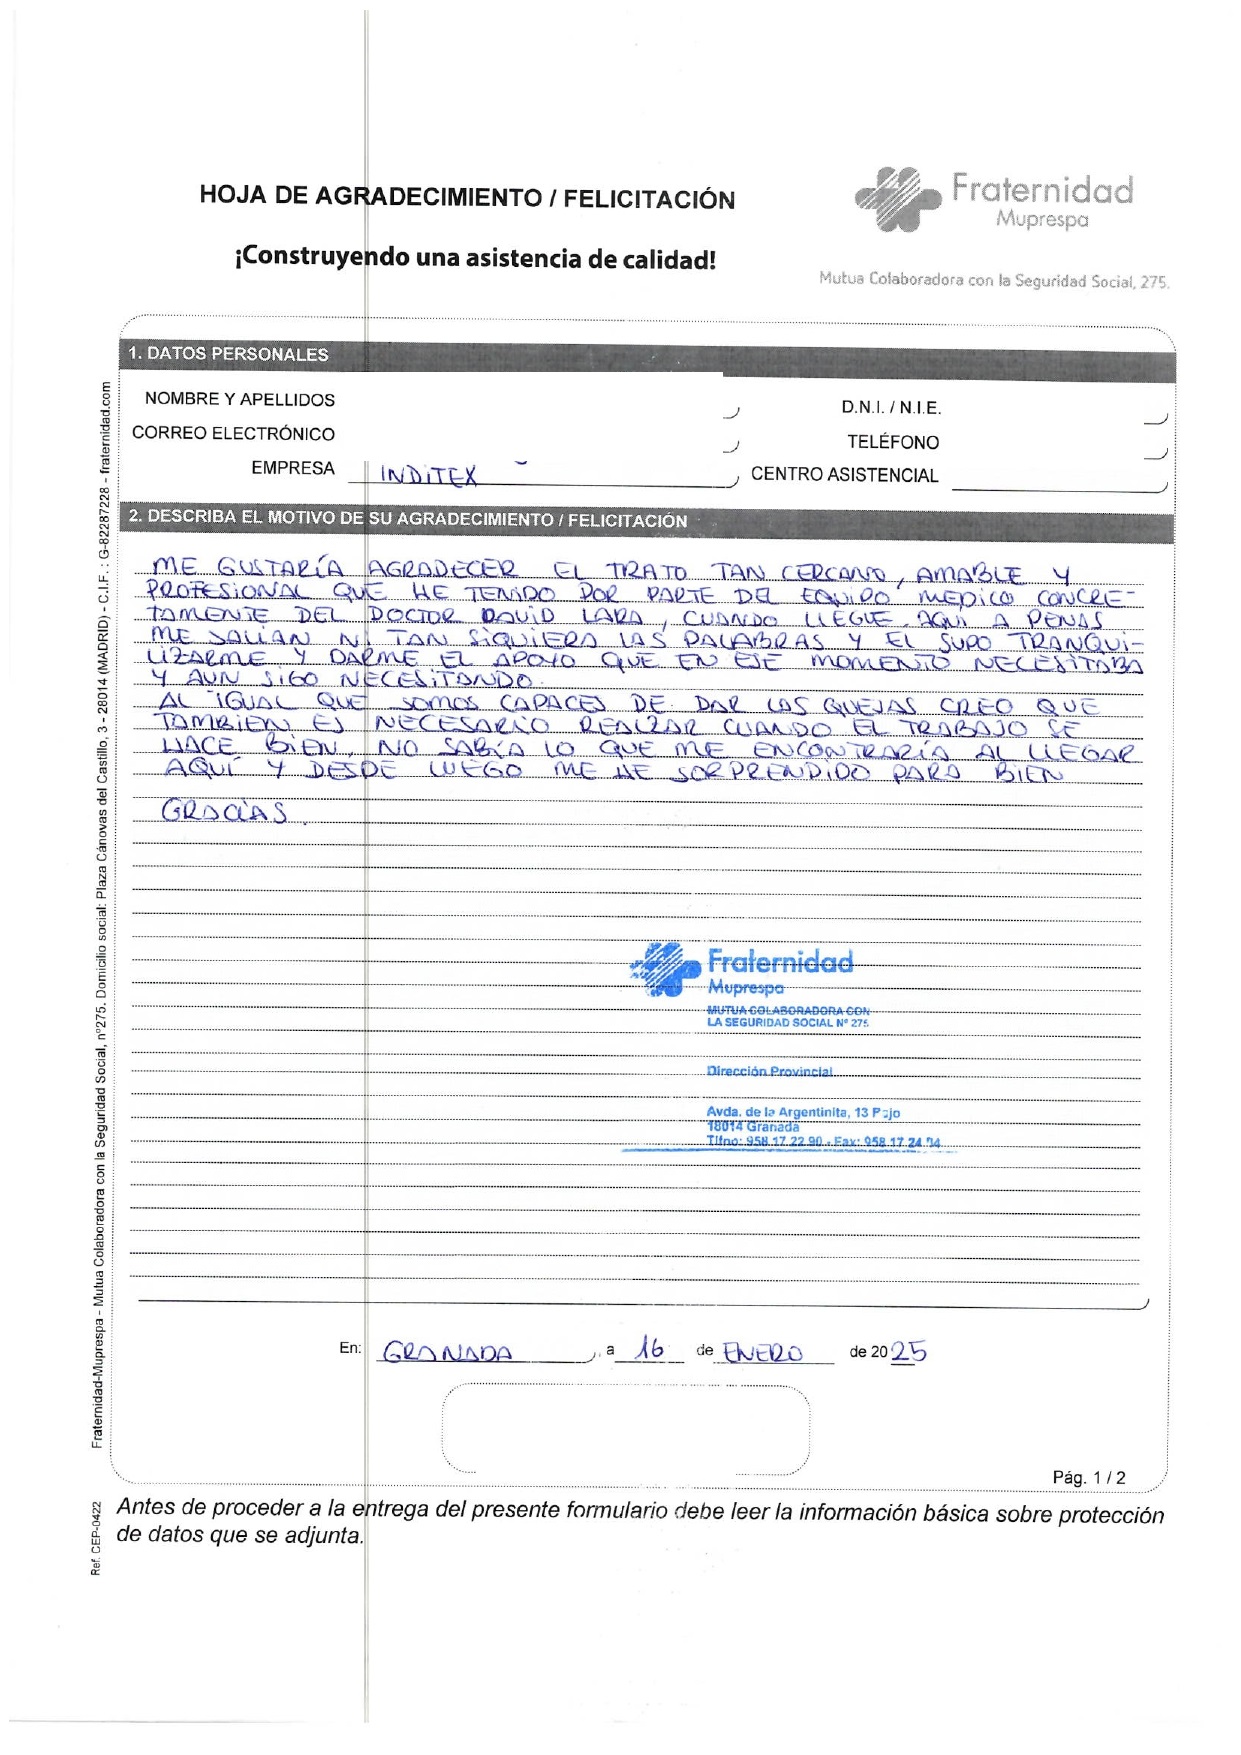 HOJA DE AGRADECIMIENTO / FELICITACIÓN
¡Construyendo una asistencia de calidad!
Fraternidad
Muprespa
Mutua Colaboradora con la Seguridad Social, 275.
1. DATOS PERSONALES
NOMBRE Y APELLIDOS
D.N.I. / N.I.E.
CORREO ELECTRÓNICO
TELÉFONO
EMPRESA INDITEX
CENTRO ASISTENCIAL
2. DESCRIBA EL MOTIVO DE SU AGRADECIMIENTO / FELICITACIÓN
ME GUSTARÍA AGRADECER EL TRATO TAN CERCANO, AMABLE Y
PROFESIONAL QUE HE TENIDO POR PARTE DEL EQUIPO MEDICO CONCRE-
TAMENTE DEL DOCTOR DAVID LARA, CUANDO LLEGUE AQUI A PENAS
ME SALIAN NI TAN SIQUIERA LAS PALABRAS Y EL SUPO TRANQUI-
LIZARME Y DARME EL APOYO QUE EN ESE MOMENTO NECESITABA
Y AUN SIGO NECESITANDO.
AL IGUAL QUE SOMOS CAPACES DE DAR LAS QUEJAS CREO QUE
TAMBIEN ES NECESARIO REALZAR CUANDO EL TRABAJO SE
HACE BIEN. NO SABÍA LO QUE ME ENCONTRARÍA AL LLEGAR
AQUÍ Y DESDE LUEGO ME HE SORPRENDIDO PARA BIEN
GRACIAS.
Fraternidad
Muprespa
MUTUA COLABORADORA CON
LA SEGURIDAD SOCIAL Nº 275
Dirección Provincial
Avda. de la Argentinita, 13 Bajo
18014 Granada
Tlfno: 958 17 22 90 - Fax: 958 17 24 94
En: GRANADA, a 16 de ENERO de 2025
Pág. 1 / 2
Antes de proceder a la entrega del presente formulario debe leer la información básica sobre protección
de datos que se adjunta.
Fraternidad-Muprespa - Mutua Colaboradora con la Seguridad Social, nº275. Domicilio social: Plaza Cánovas del Castillo, 3 - 28014 (MADRID) - C.I.F. : G-82287228 - fraternidad.com
Ref. CEP-0422